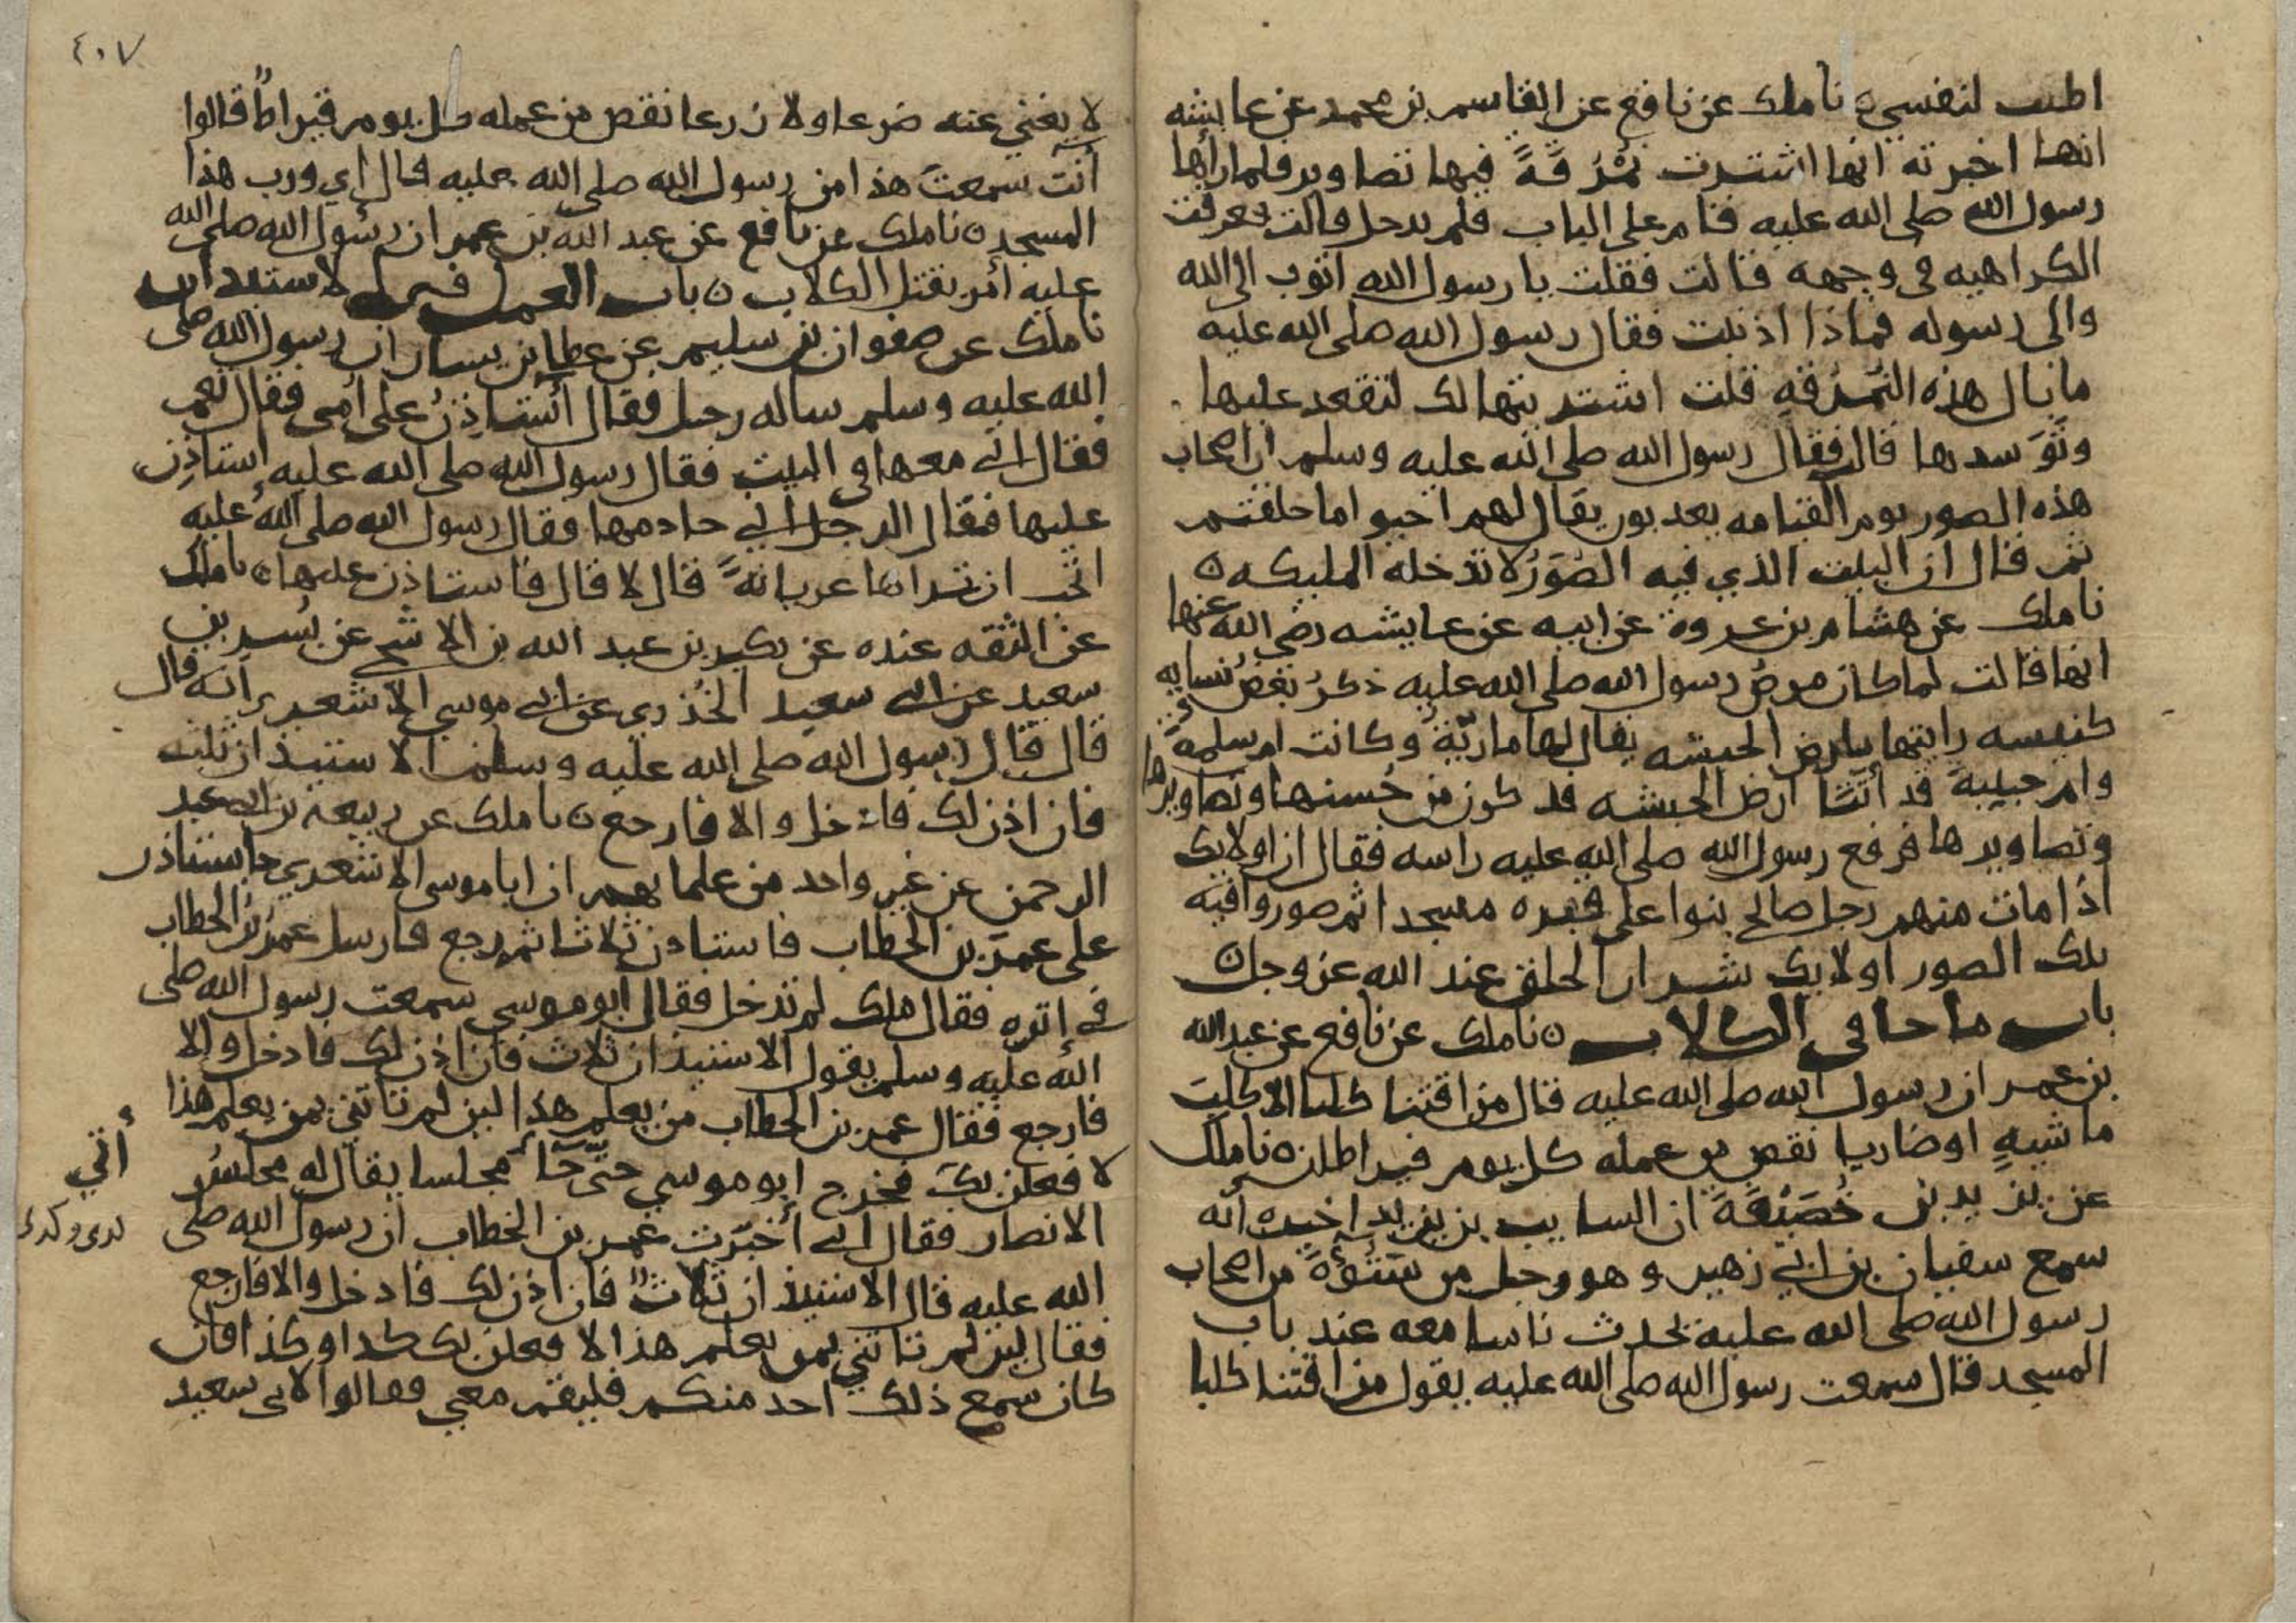 اطيب لنفسي ٥ نا ملك عن نافع عن القاسم بن محمد عن عايشه
انها اخبرته انها اشترت نُمْرُقَةً فيها تصاوير فلما راها
رسول الله صلى الله عليه قام على الباب فلم يدخل قالت فعرفت
الكراهيه في وجهه قالت فقلت يا رسول الله اتوب الى الله
والى رسوله فماذا اذنبت فقال رسول الله صلى الله عليه
ما بال هذه النُمْرُقةِ قلت اشتريتها لك لتقعد عليها
وتَوَسدها قال فقال رسول الله صلى الله عليه وسلم ان اصحاب
هذه الصور يوم القيامه يعذبون يقال لهم احيوا ما خلقتم
ثم قال ان البيت الذي فيه الصُوَرُ لا تدخله المليكه ٥
نا ملك عن هشام بن عروة عن ابيه عن عايشه رضي الله عنها
انها قالت لما كان مرضُ رسول الله صلى الله عليه ذكرَ بعضُ نسايه
كنيسه راينها بارض الحبشه يقال لها ماريّةُ وكانت ام سلمةَ
وام حبيبةَ قد أتتا ارض الحبشه فذكرن من حُسنها وتصاويرها
وتصاويرها فرفع رسول الله صلى الله عليه راسه فقال ان اولايك
اذا مات منهم رجل صالح بنوا على قبره مسجدا ثم صوروا فيه
تلك الصور اولايك شرار الخلق عند الله عز وجل ٥
باب ما جا في الكلاب ٥ نا ملك عن نافع عن عبد الله
بن عمر ان رسول الله صلى الله عليه قال من اقتنا كلبا الا كلبَ
ماشيهٍ او ضاريا نقص من عمله كل يوم قيراطان ٥ نا ملك
عن يزيد بن خُصَيْفَةَ ان السايب بن يزيد اخبره انه
سمع سفيان بن ابي زهير وهو رجل من شَنُوْءَةَ من اصحاب
رسول الله صلى الله عليه يحدث ناسا معه عند باب
المسجد قال سمعت رسول الله صلى الله عليه يقول من اقتنا كلبا
٤٠٧
لا يغني عنه ضرعا ولا زرعا نقص من عمله كل يوم قيراطٌ قالوا
أنت سمعتَ هذا من رسول الله صلى الله عليه قال اي ورب هذا
المسجد ٥ نا ملك عن نافع عن عبد الله بن عمر ان رسول الله صلى الله
عليه أمر بقتل الكلاب ٥ باب العمل في الاستيذان
نا ملك عن صفوان بن سليم عن عطا بن يسار ان رسول الله صلى
الله عليه وسلم ساله رجل فقال أستاذِنُ على أمي فقال نعم
فقال اني معها في البيت فقال رسول الله صلى الله عليه استاذِن
عليها فقال الرجل اني خادمها فقال رسول الله صلى الله عليه
اتحب ان تراها عريانةً قال لا قال فاستاذِن عليها ٥ نا ملك
عن الثقه عنده عن بكير بن عبد الله بن الاشج عن بُسر بن
سعيد عن ابي سعيد الخُدري عن ابي موسى الاشعري انه قال
قال قال رسول الله صلى الله عليه وسلم الاستيذان ثلث
فان اذن لك فادخل والا فارجع ٥ نا ملك عن ربيعه بن ابي عبد
الرحمن عن غير واحد من علمايهم ان ابا موسى الاشعري جا يستاذن
على عمرَ بن الخطاب فاستاذن ثلاثا ثم رجع فارسل عمرُ بنُ الخطاب
في إثره فقال ملك لم تدخل فقال ابو موسى سمعت رسول الله صلى
الله عليه وسلم يقول الاستيذان ثلاث فان اذن لك فادخل والا
فارجع فقال عمر بن الخطاب من يعلم هذا لين لم تاتني بمن يعلم هذا
لافعلن بكَ فخرج ابو موسى حتّى جَآءَ مجلسا يقال له مجلسُ
أتي
الانصار فقال اني أخبَرْت عمر بن الخطاب ان رسول الله صلى
الله عليه قال الاستيذان ثلاثٌ فان اذن لك فادخل والا فارجع
فقال لين لم تاتني بمن يعلم هذا لافعلن بك كذا وكذا فان
كان سمع ذلك احد منكم فليقم معي فقالوا لابي سعيد